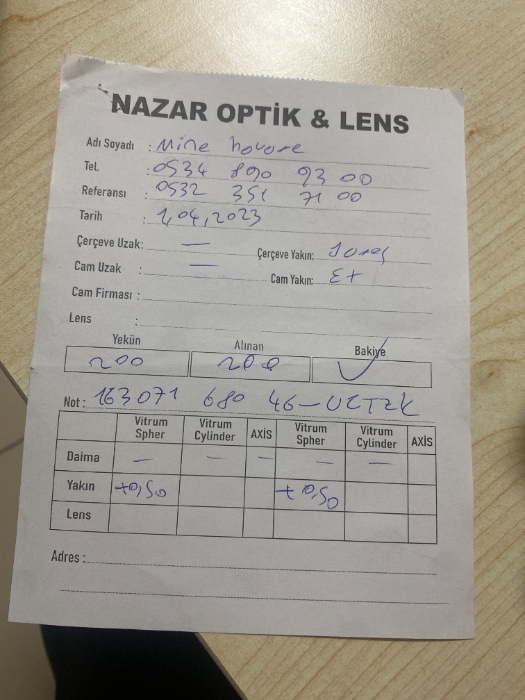 NAZAR OPTİK & LENS
Adı Soyadı : Mine
Tel. : 0534 890 93 00
Referansı : 0532 351 71 00
Tarih : 1,04,2023
Çerçeve Uzak: — Çerçeve Yakın:
Cam Uzak : — Cam Yakın:
Cam Firması :
Lens :
Yekün Alınan Bakiye
200 200 ✓
Not : 163071 680 46-
Vitrum Spher Vitrum Cylinder AXİS Vitrum Spher Vitrum Cylinder AXİS
Daima — — — — —
Yakın +0,50 +0,50
Lens
Adres :